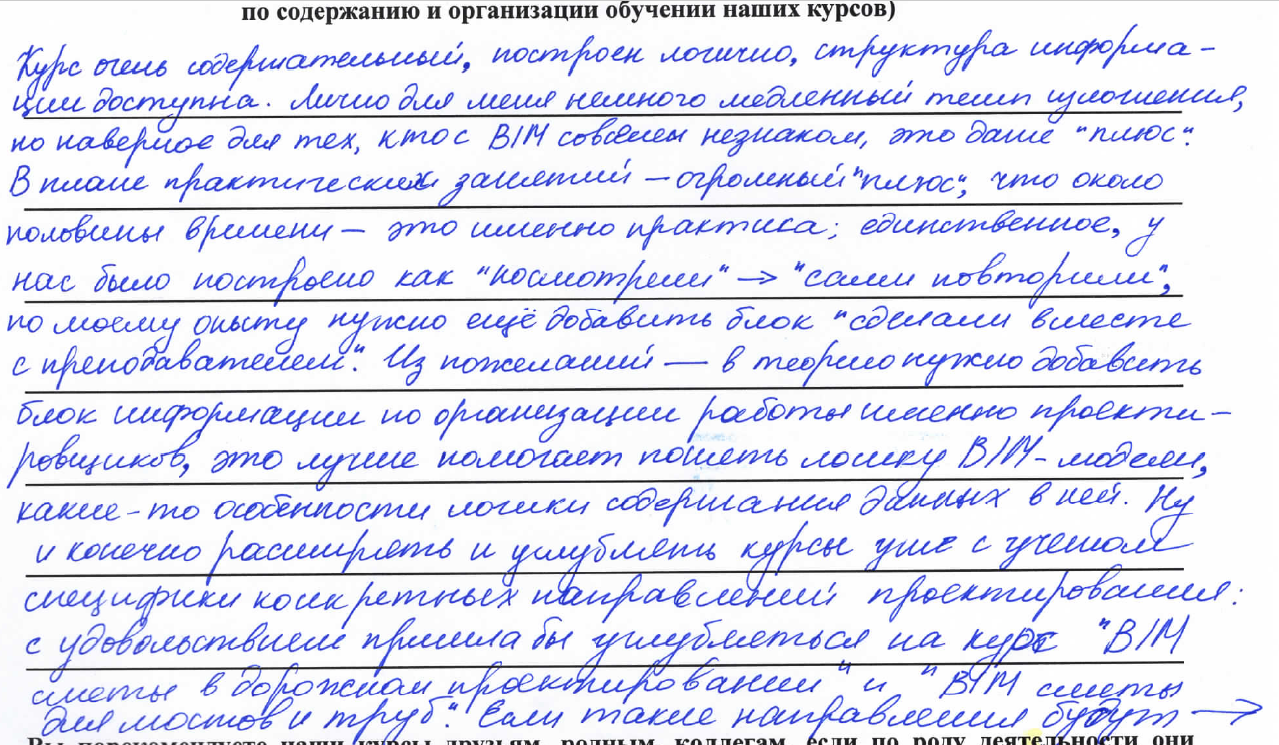 по содержанию и организации обучении наших курсов)
Курс очень содержательный, построен логично, структура информа-
ции доступна. Лично для меня немного медленный темп изложения,
но наверное для тех, кто с BIM совсем незнаком, это даже "плюс".
В плане практических занятий — огромный "плюс", что около
половины времени — это именно практика; единственное, у
нас было построено как "посмотрели" → "сами повторили",
по моему опыту нужно ещё добавить блок "сделали вместе
с преподавателем". Из пожеланий — в теорию нужно добавить
блок информации по организации работы именно проекти-
ровщиков, это лучше помогает понять логику BIM-модели,
какие-то особенности логики содержания данных в ней. Ну
и конечно расширять и углублять курсы уже с учетом
специфики конкретных направлений проектирования:
с удовольствием пришла бы углубляться на курс "BIM
сметы в дорожном проектировании" и "BIM сметы
для мостов и труб". Если такие направления будут →
Вы порекомендуете наши курсы друзьям, родным, коллегам, если по роду деятельности они